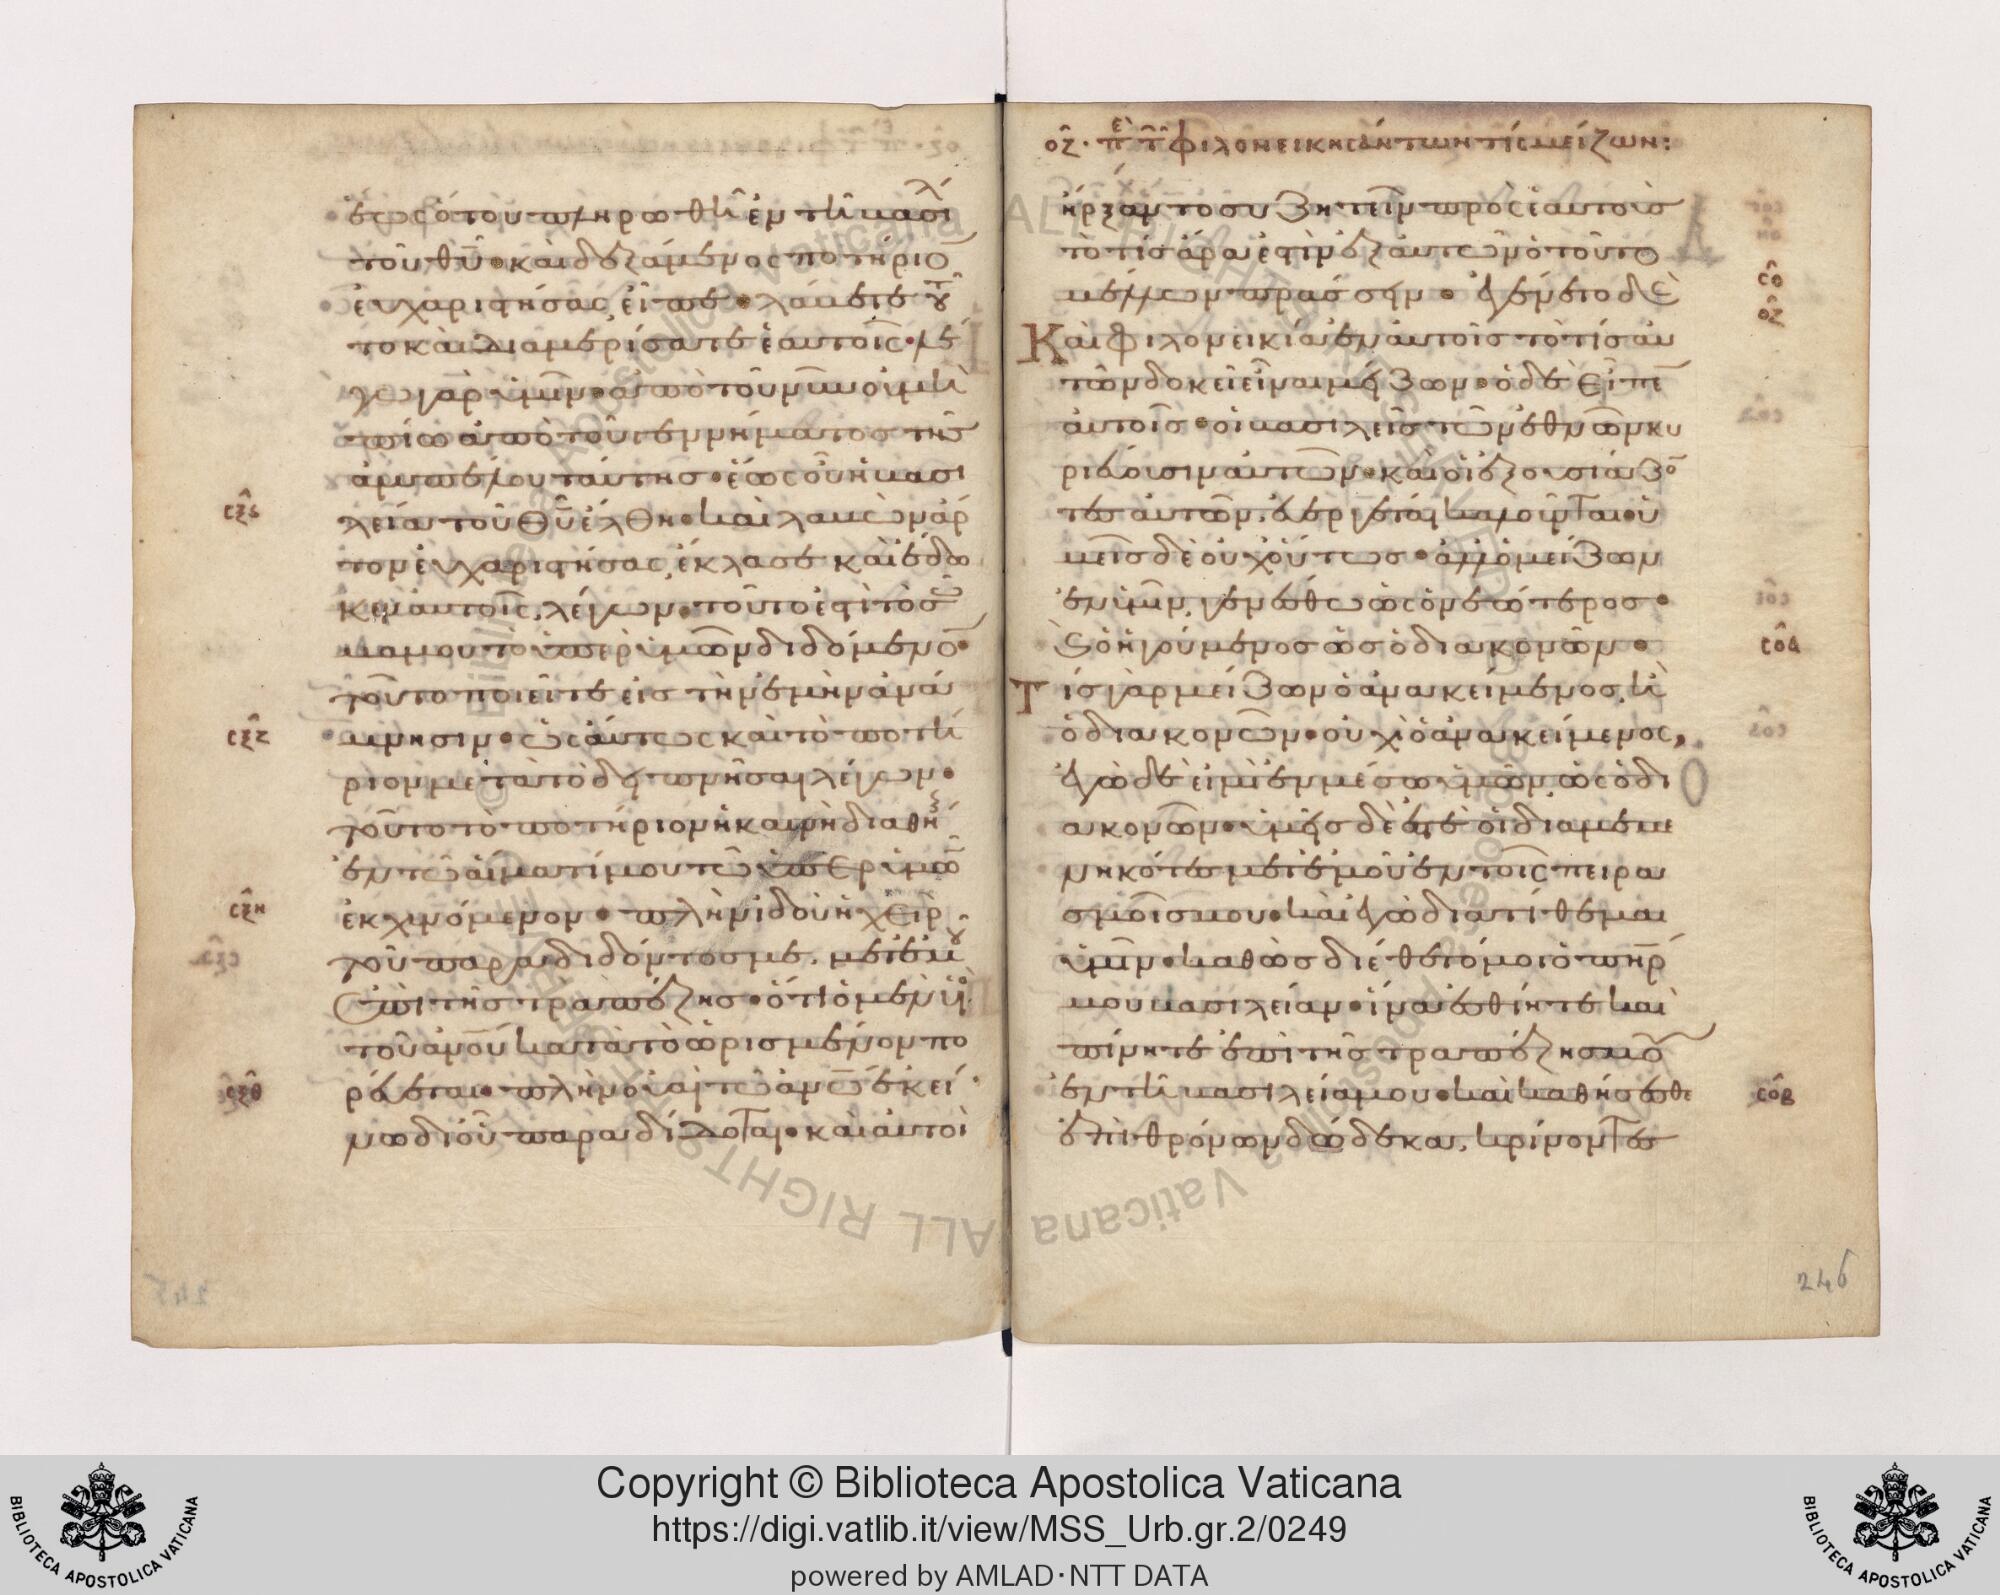 ἕως ὅτου πληρωθῆ ἐν τῆ βασιλ
τοῦ θυ· καὶ δεξάμενος ποτήριο
εὐχαριστήσας εἶπε· λάβετε τοῦ
το καὶ διαμερίσατε ἑαυτοῖς· λέ
γω γὰρ ὑμῖν· ἀπὸ τοῦ νῦν οὐ μὴ
πίω ἀπὸ τοῦ γεννήματος τῆς
ἀμπέλου ταύτης· ἕως οὗ ἡ βασι
σξς
λεία τοῦ θυ ἔλθη· καὶ λαβὼν ἄρ
τον εὐχαριστήσας ἔκλασε καὶ ἔδω
κεν αὐτοῖς, λέγων· τοῦτο ἐστὶ τὸ σῶ
μα μου τὸ ὑπὲρ ὑμῶν διδόμενο·
τοῦτο ποιεῖτε εἰς τὴν ἐμὴν ἀνά
σξζ
μνησιν· ὡσαύτως καὶ τὸ ποτή
ριον μετὰ τὸ δειπνῆσαι λέγων·
τοῦτο τὸ ποτήριον ἡ καινὴ διαθή
ἐν τῶ αἵματί μου τῶ ὑπὲρ ὑμῶ
σξη
ἐκχυνόμενον· πλὴν ἰδοὺ ἡ χεὶρ
τοῦ παραδιδόντος με, μετ' ἐμοῦ
ἐπὶ τῆς τραπέζης· ὅτι ὁ μὲν υἱὸ
τοῦ ἀνου κατὰ τὸ ὡρισμένον πο
σξθ
ρεύεται· πλὴν οὐαὶ τῶ ἀνω ἐκεί
νω δι' οὗ παραδίδοται· καὶ αὐτοὶ
οζ· πε τ φιλονεικησάντων τίς μείζων:
ἤρξαντο συζητεῖν πρὸς ἑαυτοὺς
τὸ τίς ἄρα ἐστὶν ἐξ αὐτῶν ὁ τοῦτο
σο
μέλλων πράσσειν· ἐγένετο δὲ
οζ
Καὶ φιλονεικία ἐν αὐτοῖς τὸ τίς αὐ
τῶν δοκεῖ εἶναι μείζων· ὁ δὲ εἶπε
αὐτοῖς· οἱ βασιλεῖς τῶν ἐθνῶν κυ
ριεύουσιν αὐτῶν· καὶ οἱ ἐξουσιάζο
τες αὐτῶν, εὐεργέται καλοῦνται· ὑ
μεῖς δὲ οὐχ οὕτως· ἀλλ' ὁ μείζων
ἐν ὑμῖν, γενέσθω ὡς ὁ νεώτερος·
σοα
καὶ ὁ ἡγούμενος ὡς ὁ διακονῶν·
Τίς γὰρ μείζων ὁ ἀνακείμενος, ἢ
ὁ διακονῶν· οὐχὶ ὁ ἀνακείμενος,
ἐγὼ δέ εἰμι ἐν μέσω ὑμῶν, ὡς ὁ δι
ακονῶν· ὑμεῖς δέ ἐστε οἱ διαμεμε
νηκότες μετ' ἐμοῦ ἐν τοῖς πειρα
σμοῖς μου· καὶ ἐγὼ διατίθεμαι
ὑμῖν· καθὼς διέθετό μοι ὁ πηρ
μου βασιλείαν· ἵνα ἐσθίητε καὶ
πίνητε ἐπὶ τῆς τραπέζης μου
σοβ
ἐν τῆ βασιλεία μου· καὶ καθήσεσθε
ἐπὶ θρόνων δώδεκα, κρίνοντες
246
Copyright © Biblioteca Apostolica Vaticana
https://digi.vatlib.it/view/MSS_Urb.gr.2/0249
powered by AMLAD·NTT DATA
BIBLIOTECA APOSTOLICA VATICANA
BIBLIOTECA APOSTOLICA VATICANA